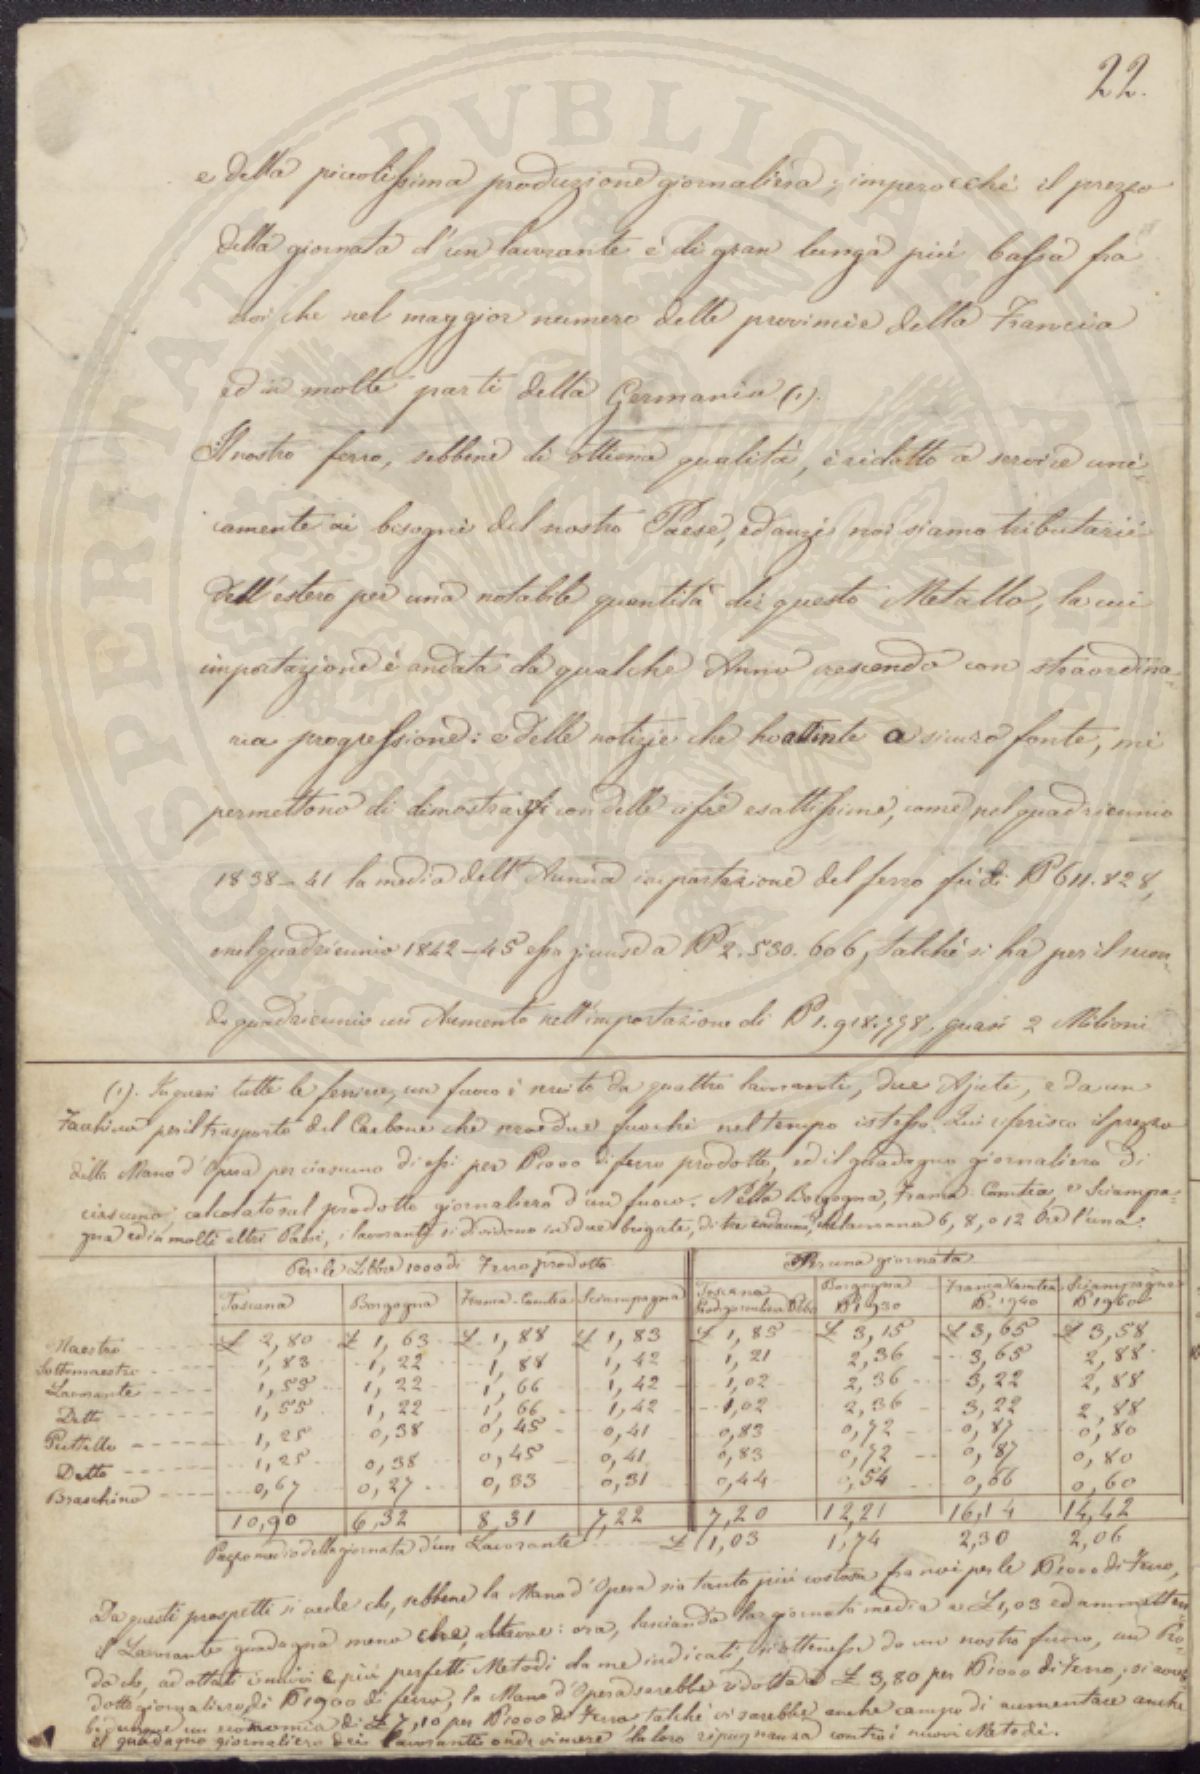 22.
e della picolissima produzione giornaliera; imperocchè il prezzo
della giornata d'un lavorante è di gran lunga più bassa fra
noi che nel maggior numero delle provincie della Francia
ed in molte parti della Germania (1).
Il nostro ferro, sebbene di ottima qualità, è ridotto a servire uni-
camente ai bisogni del nostro Paese, ed anzi noi siamo tributarii
dell'estero per una notabile quantità di questo Metallo, la cui
importazione è andata da qualche Anno crescendo con straordina-
ria progressione: e delle notizie che ho attinte a sicura fonte, mi
permettono di dimostrarsi con delle cifre esattissime, come nel quadriennio
1838-41 la media dell'Annua importazione del ferro fù di ℔ 611.828,
nel quadriennio 1842-45 essa giunse a ℔ 2.530.606, talchè si ha per il secon-
do quadriennio un Aumento nell'importazione di ℔ 1.918.778, quasi 2 Milioni
(1). In quasi tutte le ferriere, un fuoco è servito da quattro lavoranti, due Ajuti, e da un
Facchino per il trasporto del Carbone che serve due fuochi nel tempo istesso. Qui riferisco il prezzo
della Mano d'Opera per ciascuno di essi per ℔ 1000 di ferro prodotto, ed il guadagno giornaliero di
ciascuno, calcolato sul prodotto giornaliero d'un fuoco. Nella Borgogna, Franca-Contea, e Sciampa-
gna ed in molti altri Paesi, i lavoranti si dividono in due brigate, di tre cadauna, che lavorano 6, 8, o 12 Ore l'una.
Per le Libbre 1000 di Ferro prodotto Per una giornata
Toscana Borgogna Franca-Contea Sciampagna Toscana Borgogna ℔ 1930 Franca Contea ℔ 1940 Sciampagna ℔ 1960
Maestro £ 2,80 £ 1,63 £ 1,88 £ 1,83 £ 1,85 £ 3,15 £ 3,65 £ 3,58
Sottomaestro 1,83 1,22 1,88 1,42 1,21 2,36 3,65 2,88
Lavorante 1,55 1,22 1,66 1,42 1,02 2,36 3,22 2,88
Detto 1,55 1,22 1,66 1,42 1,02 2,36 3,22 2,88
Puttello 1,25 0,38 0,45 0,41 0,83 0,72 0,87 0,80
Detto 1,25 0,38 0,45 0,41 0,83 0,72 0,87 0,80
Braschino 0,67 0,27 0,33 0,31 0,44 0,54 0,66 0,60
10,90 6,32 8,31 7,22 7,20 12,21 16,14 14,42
Prezzo medio della giornata d'un Lavorante £ 1,03 1,74 2,30 2,06
Da questi prospetti si vede che, sebbene la Mano d'Opera sia tanto più costosa fra noi per le ℔ 1000 di Ferro,
il Lavorante guadagna meno che altrove: ora, lasciando la giornata media a £ 1,03 ed ammetten-
do che, adottati i nuovi e più perfetti Metodi da me indicati, si ottenesse da un nostro fuoco, un Pro-
dotto giornaliero, di ℔ 1900 di ferro, la Mano d'Opera sarebbe ridotta a £ 3,80 per ℔ 1000 di Ferro; si avreb-
be dunque un economia di £ 7,10 per ℔ 1000 di Ferro talchè vi sarebbe anche campo di aumentare anche
il guadagno giornaliero dei lavoranti onde vincere la loro ripugnanza contro i nuovi Metodi.